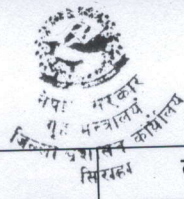 नेपाल सरकार
गृह मन्त्रालय
जिल्ला प्रशासन कार्यालय
सिरहा